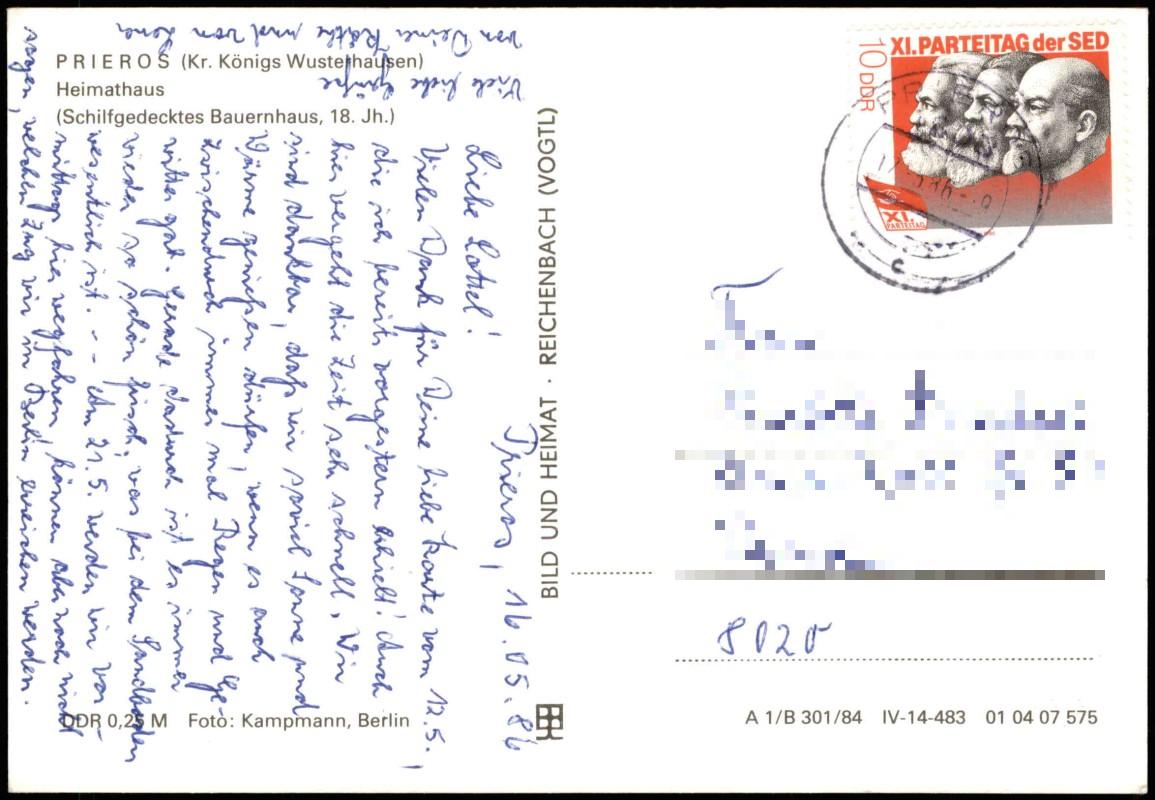 PRIEROS (Kr. Königs Wusterhausen)
Heimathaus
(Schilfgedecktes Bauernhaus, 18. Jh.)
Prieros, 16.05.86
Liebe Lottel!
Vielen Dank für Deine liebe Karte vom 12.5.,
die ich bereits vorgestern erhielt! Auch
hier vergeht die Zeit sehr schnell. Wir
sind dankbar, daß wir soviel Sonne und
Wärme genießen dürfen, wenn es auch
zwischendurch immer mal Regen und Ge-
witter gab. Gerade dadurch ist es immer
wieder so schön frisch, was bei dem Sandboden
wesentlich ist. - - Am 21.5. werden wir vor-
mittags hier wegfahren, können aber noch nicht
sagen, welchen Zug wir in Berlin erreichen werden.
Viele liebe Grüße
von Deiner Käthe und von
BILD UND HEIMAT · REICHENBACH (VOGTL)
DDR 0,25 M Foto: Kampmann, Berlin
XI. PARTEITAG der SED
10 DDR
XI.
PARTEITAG
PRIEROS
c
8020
A 1/B 301/84 IV-14-483 01 04 07 575